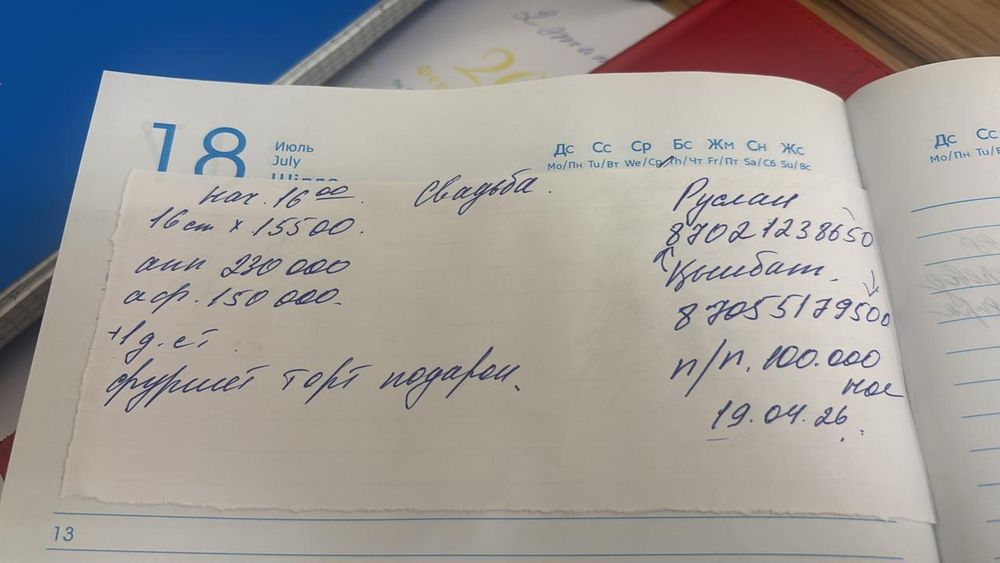 2 этап
18
Июль
July
Дс Сс Ср Бс Жм Сн Жс
Mo/Пн Tu/Вт We/Ср Th/Чт Fr/Пт Sa/Сб Su/Вс
Дс Сс
Mo/Пн Tu/В
нач. 16 00. Свадьба.
16 ст х 15500.
апп 230 000
аф. 150 000.
+1 д. ст
фуршет торт подарок.
Руслан
87021238650
Қымбат.
87055179500
п/п. 100.000
нал
19.04.26.
13